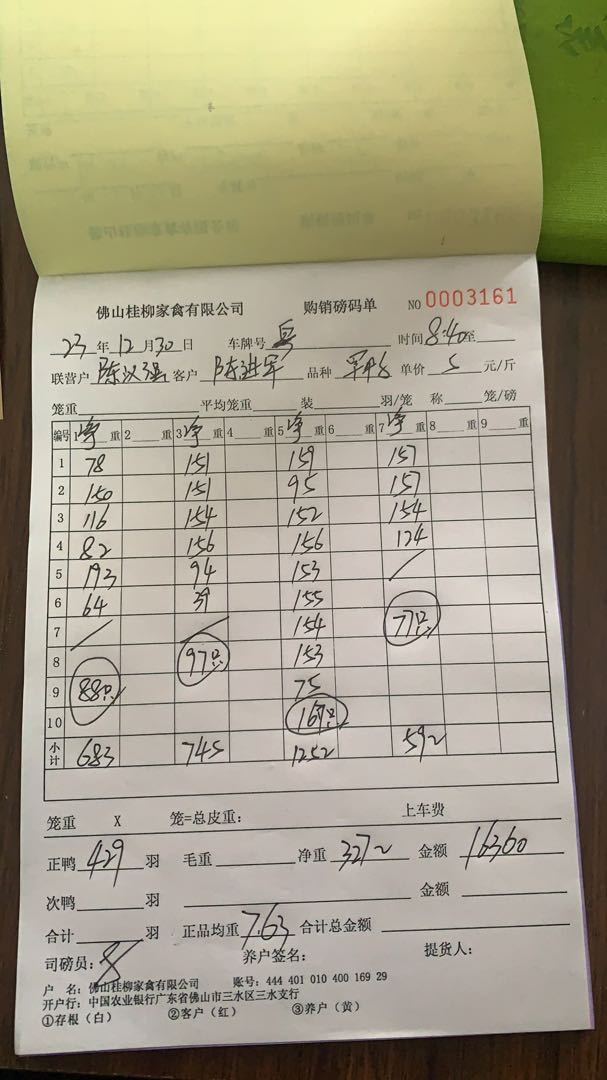 佛山桂柳家禽有限公司 购销磅码单 NO 0003161
23 年 12 月 30 日 车牌号 粤 时间 8:40 至
联营户 陈汉强 客户 陈进军 品种 单价 5 元/斤
笼重 平均笼重 装 羽/笼 称 笼/磅
编号 1 净 重 2 重 3 净 重 4 重 5 净 重 6 重 7 净 重 8 重 9 重
1 78 151 159 157
2 150 151 95 157
3 116 154 152 154
4 82 156 156 124
5 193 94 153 /
6 64 39 155
7 / / 154 77只
8 97只 153
9 88只 75
10 167只
小计 683 745 1252 592
笼重 X 笼=总皮重: 上车费
正鸭 429 羽 毛重 净重 3272 金额 16360
次鸭 羽 金额
合计 羽 正品均重 7.63 合计总金额
司磅员: 养户签名: 提货人:
户 名: 佛山桂柳家禽有限公司 账号: 444 401 010 400 169 29
开户行: 中国农业银行广东省佛山市三水区三水支行
①存根（白） ②客户（红） ③养户（黄）